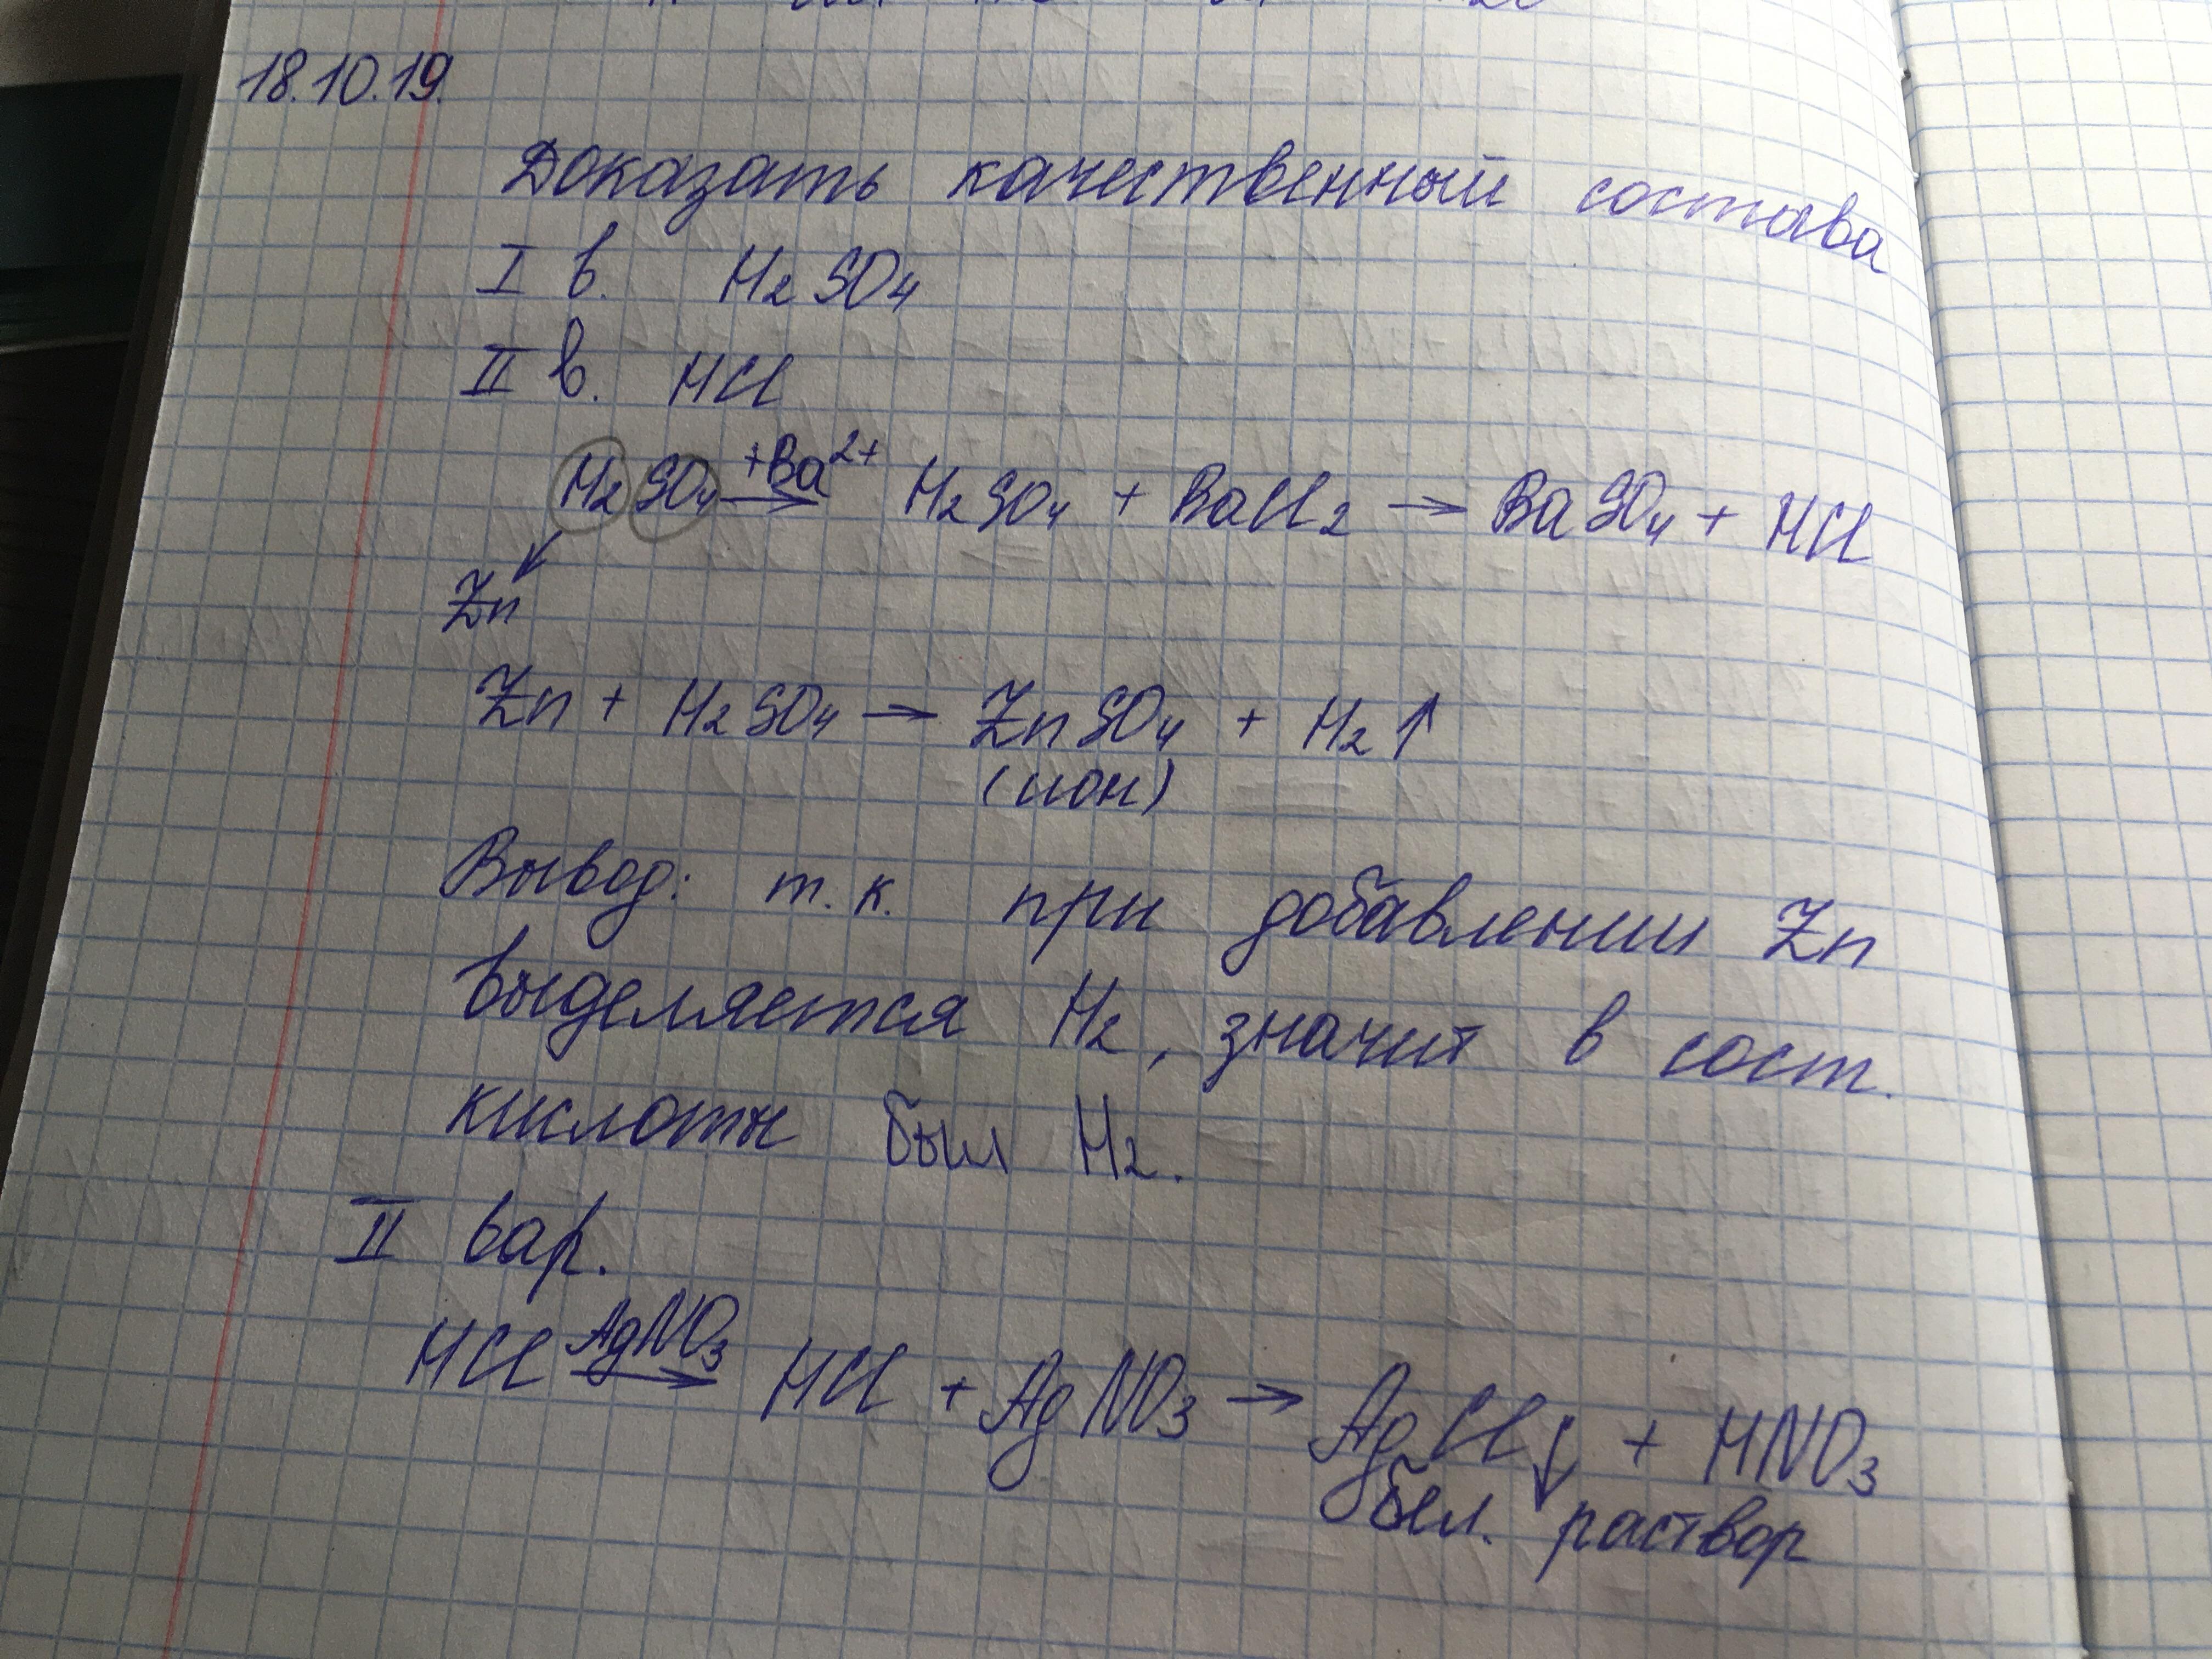 18.10.19.
Доказать качественный состава
I в. H₂SO₄
II в. HCl
H₂SO₄ +Ba²⁺→ H₂SO₄ + BaCl₂ → BaSO₄ + HCl
Zn
Zn + H₂SO₄ → ZnSO₄ + H₂↑
(ион)
Вывод: т.к. при добавлении Zn
выделяется H₂, значит в сост.
кислоты был H₂.
II вар.
HCl AgNO₃→ HCl + AgNO₃ → AgCl↓ + HNO₃
бел. раствор